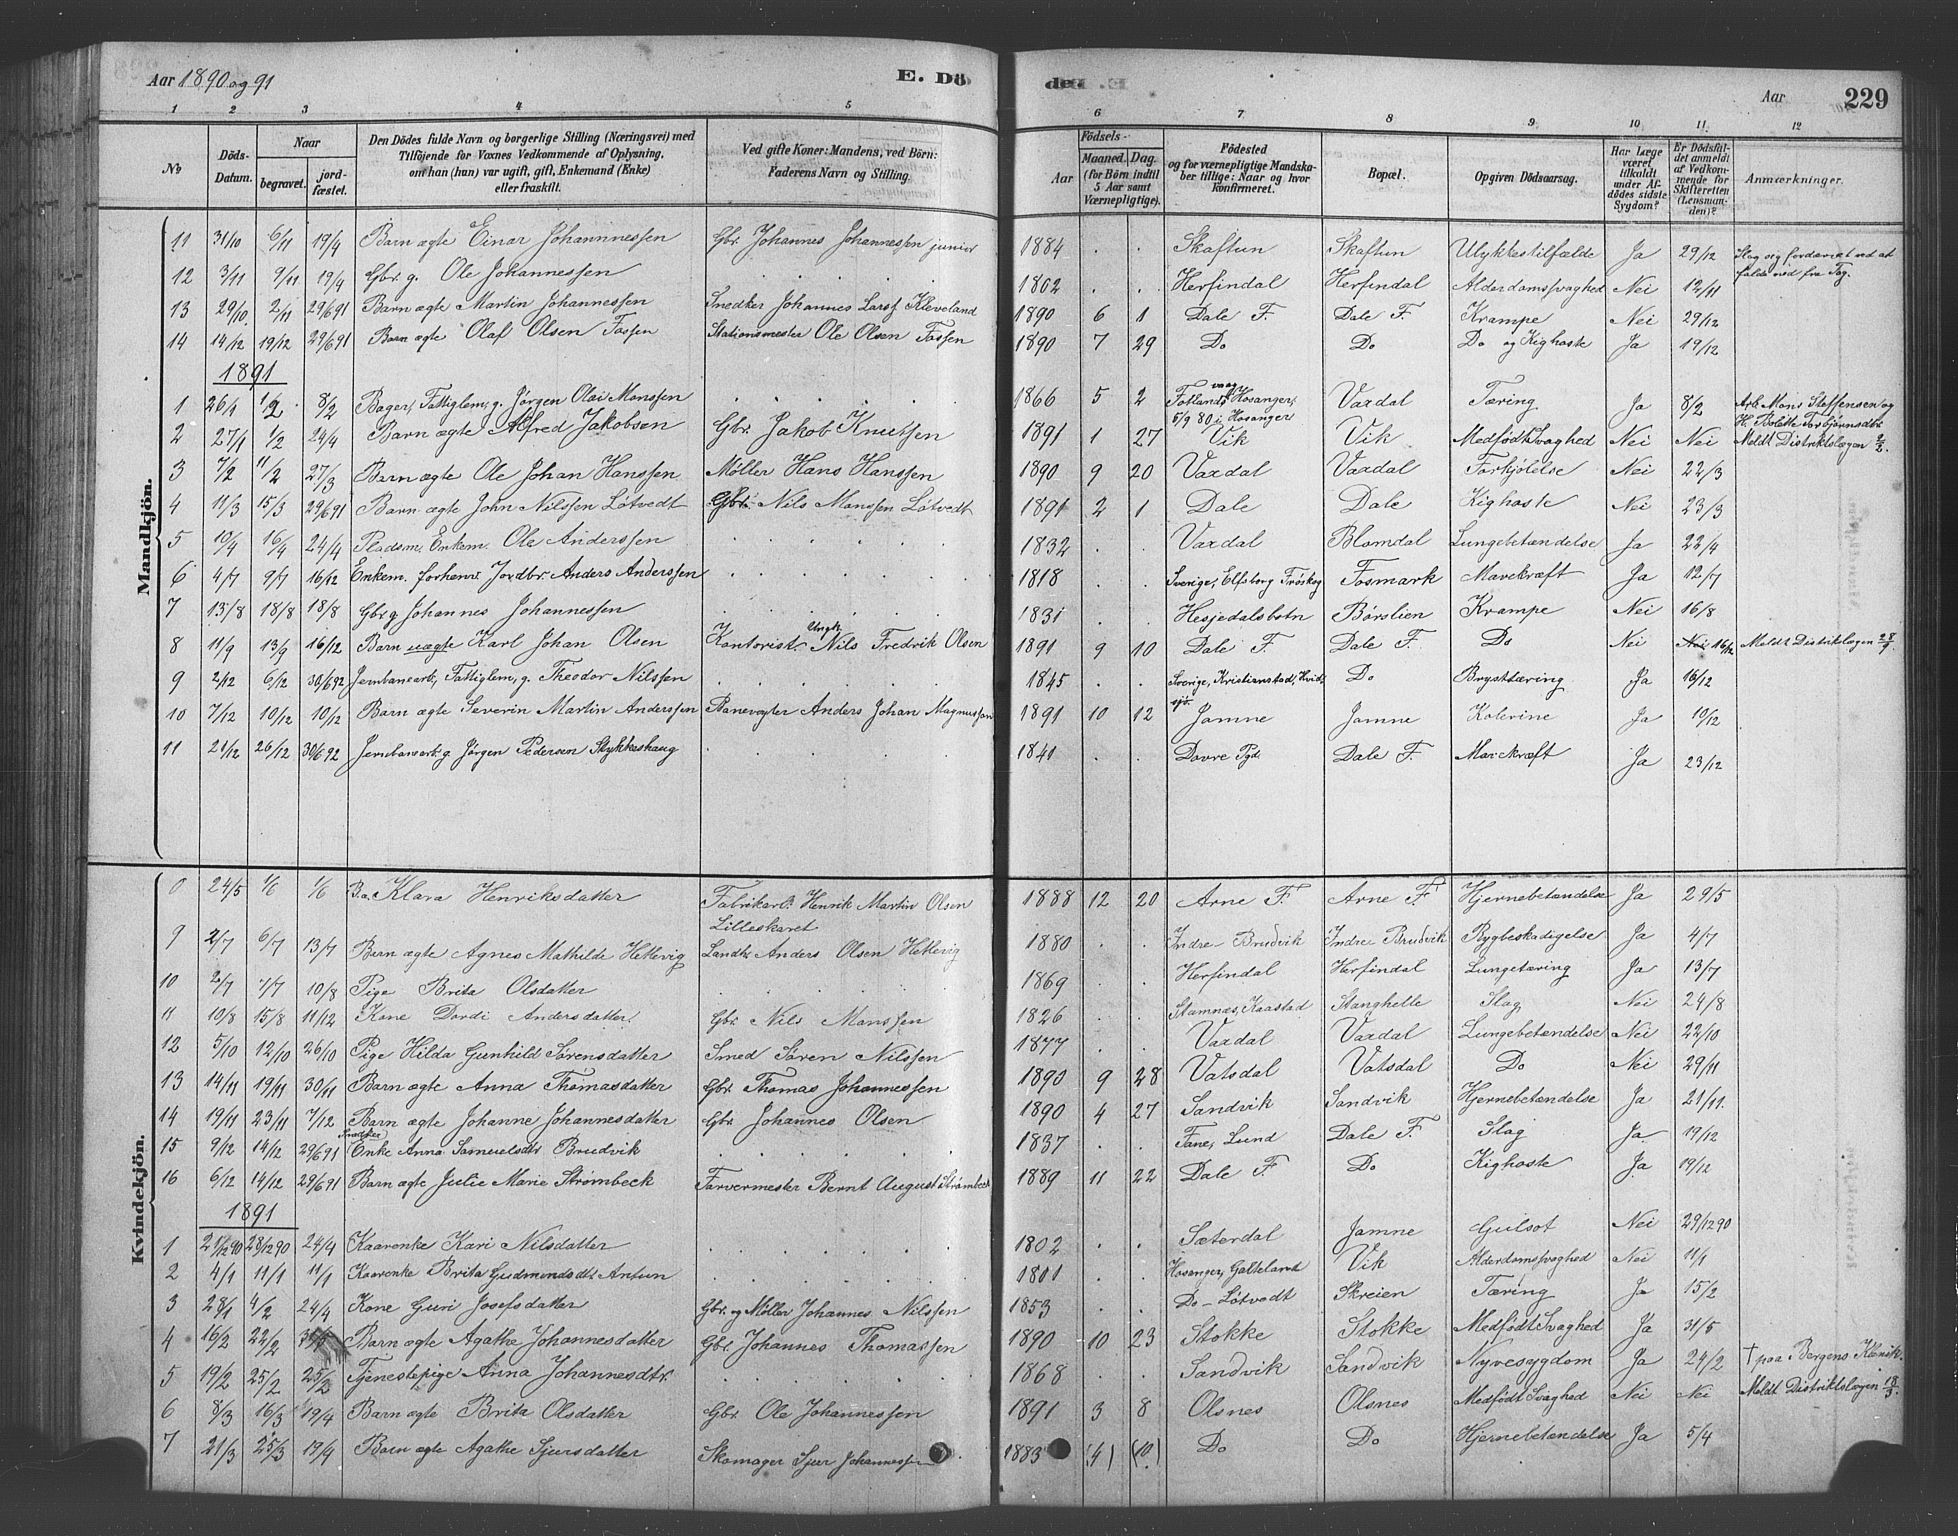 Aar 1890 og 91 E. Dö den. Aar 229
1 2 3 4 5 6 7 8 9 10 11 12
No Döds-Datum. Naar begravet. jordfæstet. Den Dödes fulde Navn og borgerlige Stilling (Næringsvei) med Tilföjende for Voxnes Vedkommende af Oplysning, om han (hun) var ugift, gift, Enkemand (Enke) eller fraskilt. Ved gifte Koner: Mandens, ved Börn: Faderens Navn og Stilling. Födsels- Aar Maaned. Dag. (for Börn indtil 5 Aar samt Værnepligtige). Födested og for værnepligtige Mandskaber tillige: Naar og hvor konfirmeret. Bopæl. Opgiven Dödsaarsag. Har Læge været tilkaldt under Afdödes sidste Sygdom? Er Dödsfaldet anmeldt af Vedkommende for Skifteretten (Lensmanden)? Anmærkninger.
Mandkjön.
11 31/10 6/11 19/4 Barn ægte Einar Johannessen Gbr. Johannes Johannessen junior 1884 . . Skaftun Skaftun Ulykkestilfælde Ja 29/12 Slog sig fordærvet ved at falde ned fra Tag.
12 3/11 9/11 19/4 Gbr. g. Ole Johannessen . . . . . 1802 . . Herfindal Herfindal Alderdomssvaghed Nei 12/11
13 29/10. 2/11 29/6 91 Barn ægte Martin Johannessen Snedker Johannes Larss. Kleveland 1890 6 1 Dale F. Dale F. Krampe Nei 29/12
14 14/12 19/12 29/6 91 Barn ægte Olaf Olsen Fossen Stationsmester Ole Olsen Fossen 1890 7 29 Do Do Do og Kighoste Ja 19/12
1891
1 26/1 1/2 8/2 Bager, Fattiglem, g. Jørgen Olai Monssen . . . . . 1866 5 2 Fotlandsvaag Hosanger, 5/9 80 i Hosanger Vaxdal Tæring Ja 8/2 Arb. Mons Steffensen og H. Bolette Torbjørnsdtr
2 27/1 1/2 24/4 Barn ægte Alfred Jakobsen Gbr. Jakob Knutsen 1891 1 27 Vik Vik Medfödt Svaghed Nei Nei Meldt Distriktslægen 2/2.
3 7/2 11/2 27/3 Barn ægte Ole Johan Hanssen Møller Hans Hanssen 1890 9 20 Vaxdal Vaxdal Forkjølelse Nei 22/3
4 11/3 15/3 29/6 91 Barn ægte John Nilssen Løtvedt Gbr. Nils Monssen Løtvedt 1891 2 1 Dale Dale Kighoste Nei 23/3
5 10/4 16/4 24/4 Pladsm., Enkem. Ole Anderssen . . . . . 1832 . . Vaxdal Blomdal Lungebetændelse Ja 22/4
6 4/7 9/7 16/12 Enkem. forhenv. Jordbr. Anders Anderssen . . . . . 1818 . . Sverige, Elfsborg Fröskog Fosmark Mavekræft Ja 12/7
7 13/8 18/8 18/8 Gbr g Johannes Johannessen . . . . . 1831 . . Hesjedalsbotn Børslien Krampe Nei 16/8
8 11/9 13/9 16/12 Barn uægte Karl Johan Olsen Kontorist, Ungk. Nils Fredrik Olsen 1891 9 10 Dale F. Dale F. Do Nei Nei 16/12 Meldt Distriktslægen 28/9.
9 2/12 6/12 30/6 92 Jernbanearb., Fattiglem, g. Theodor Nilssen . . . . . 1845 . . Sverige, Kristianstad, Hvidsjö. Do Brysttæring Ja 16/12
10 7/12 10/12 10/12 Barn ægte Severin Martin Anderssen Banevogter Anders Johan Magnussen 1891 10 12 Jamne Jamne Kolerine Ja 10/12
11 21/12 26/12 30/6 92 Jernbanearb. g. Jørgen Pedersen Stykkeshaug . . . . . 1841 . . Dovre Pgd Dale F. Mavekræft Ja 23/12
Kvindekjön.
0 24/5 1/6 1/6 B.æ. Klara Henriksdatter Fabrikarb. Henrik Martin Olsen Lilleskaret 1888 12 20 Arne F. Arne F. Hjernebetændelse Ja 29/5
9 2/7 6/7 13/7 Barn ægte Agnes Mathilde Hetlevig Landh. Anders Olsen Hetlevig 1880 . . Indre Brudvik Indre Brudvik Rygbeskadigelse Ja 4/7
10 2/7 7/7 10/8 Pige Brita Olsdatter . . . . . 1869 . . Herfindal Herfindal Lungetæring Ja 13/7
11 10/8 15/8 11/12 Kone Dordi Andersdatter. Gbr. Nils Monssen 1826 . . Stamnes, Kaastad Stanghelle Slag Nei 24/8
12 5/10 12/10 26/10 Pige Hilda Gunhild Sørensdatter Smed Søren Nilssen 1877 . . Vaxdal Vaxdal Lungebetændelse Nei 22/10
13 14/11 19/11 30/11 Barn ægte Anna Thomasdatter Gbr. Thomas Johannessen 1890 9 28 Vatsdal Vatsdal Do Nei 29/11
14 19/11 23/11 7/12 Barn ægte Johanne Johannesdatter Gbr Johannes Olsen 1890 4 27 Sandvik Sandvik Hjernebetændelse Ja 21/11.
15 9/12 14/12 29/6 91 Snedker Enke Anna Samuelsdtr Brudvik . . . . . 1837 . . Fane, Lund Dale F. Slag Ja 19/12
16 6/12 14/12 29/6 91 Barn ægte Julie Marie Strømbeck Farvermester Bernt August Strømbeck 1889 11 22 Dale F Do Kighoste Ja 19/12
1891
1 21/12 90 28/12 90 24/4 Kaarenke Kari Nilsdatter . . . . . 1802 . . Sæterdal Jamne Gulsot Nei 29/12 90
2 4/1 11/1 11/1 Kaarenke Brita Gudmundsdtr Antun . . . . . 1801 . . Hosanger, Galteland Vik Alderdomssvaghed Nei 11/1
3 28/1 4/2 24/4 Kone Guri Josefsdatter Gbr. og Møller Johannes Nilssen 1853 . . Do - Løtvedt Skreien Tæring Ja 15/2
4 16/2 22/2 Barn ægte Agathe Johannesdatter Gbr. Johannes Thomassen 1890 10 23 Stokke Stokke Medfödt Svaghed Ja 31/5
5 19/2 25/2 25/2 Tjenestepige Anna Johannesdtr. . . . . . 1868 . . Sandvik Sandvik Nyresygdom Ja 24/2 † paa Bergens Klinik.
6 8/3 16/3 19/4 Barn ægte Brita Olsdatter Gbr. Ole Johannessen 1891 3 8 Olsnes Olsnes Medfödt Svaghed Nei Nei Meldt Distriktslægen 18/3.
7 21/3 25/3 19/4 Barn ægte Agathe Sjursdatter Skomager Sjur Johannessen 1883 (4) (10) Do Do Hjernebetændelse Ja 5/4